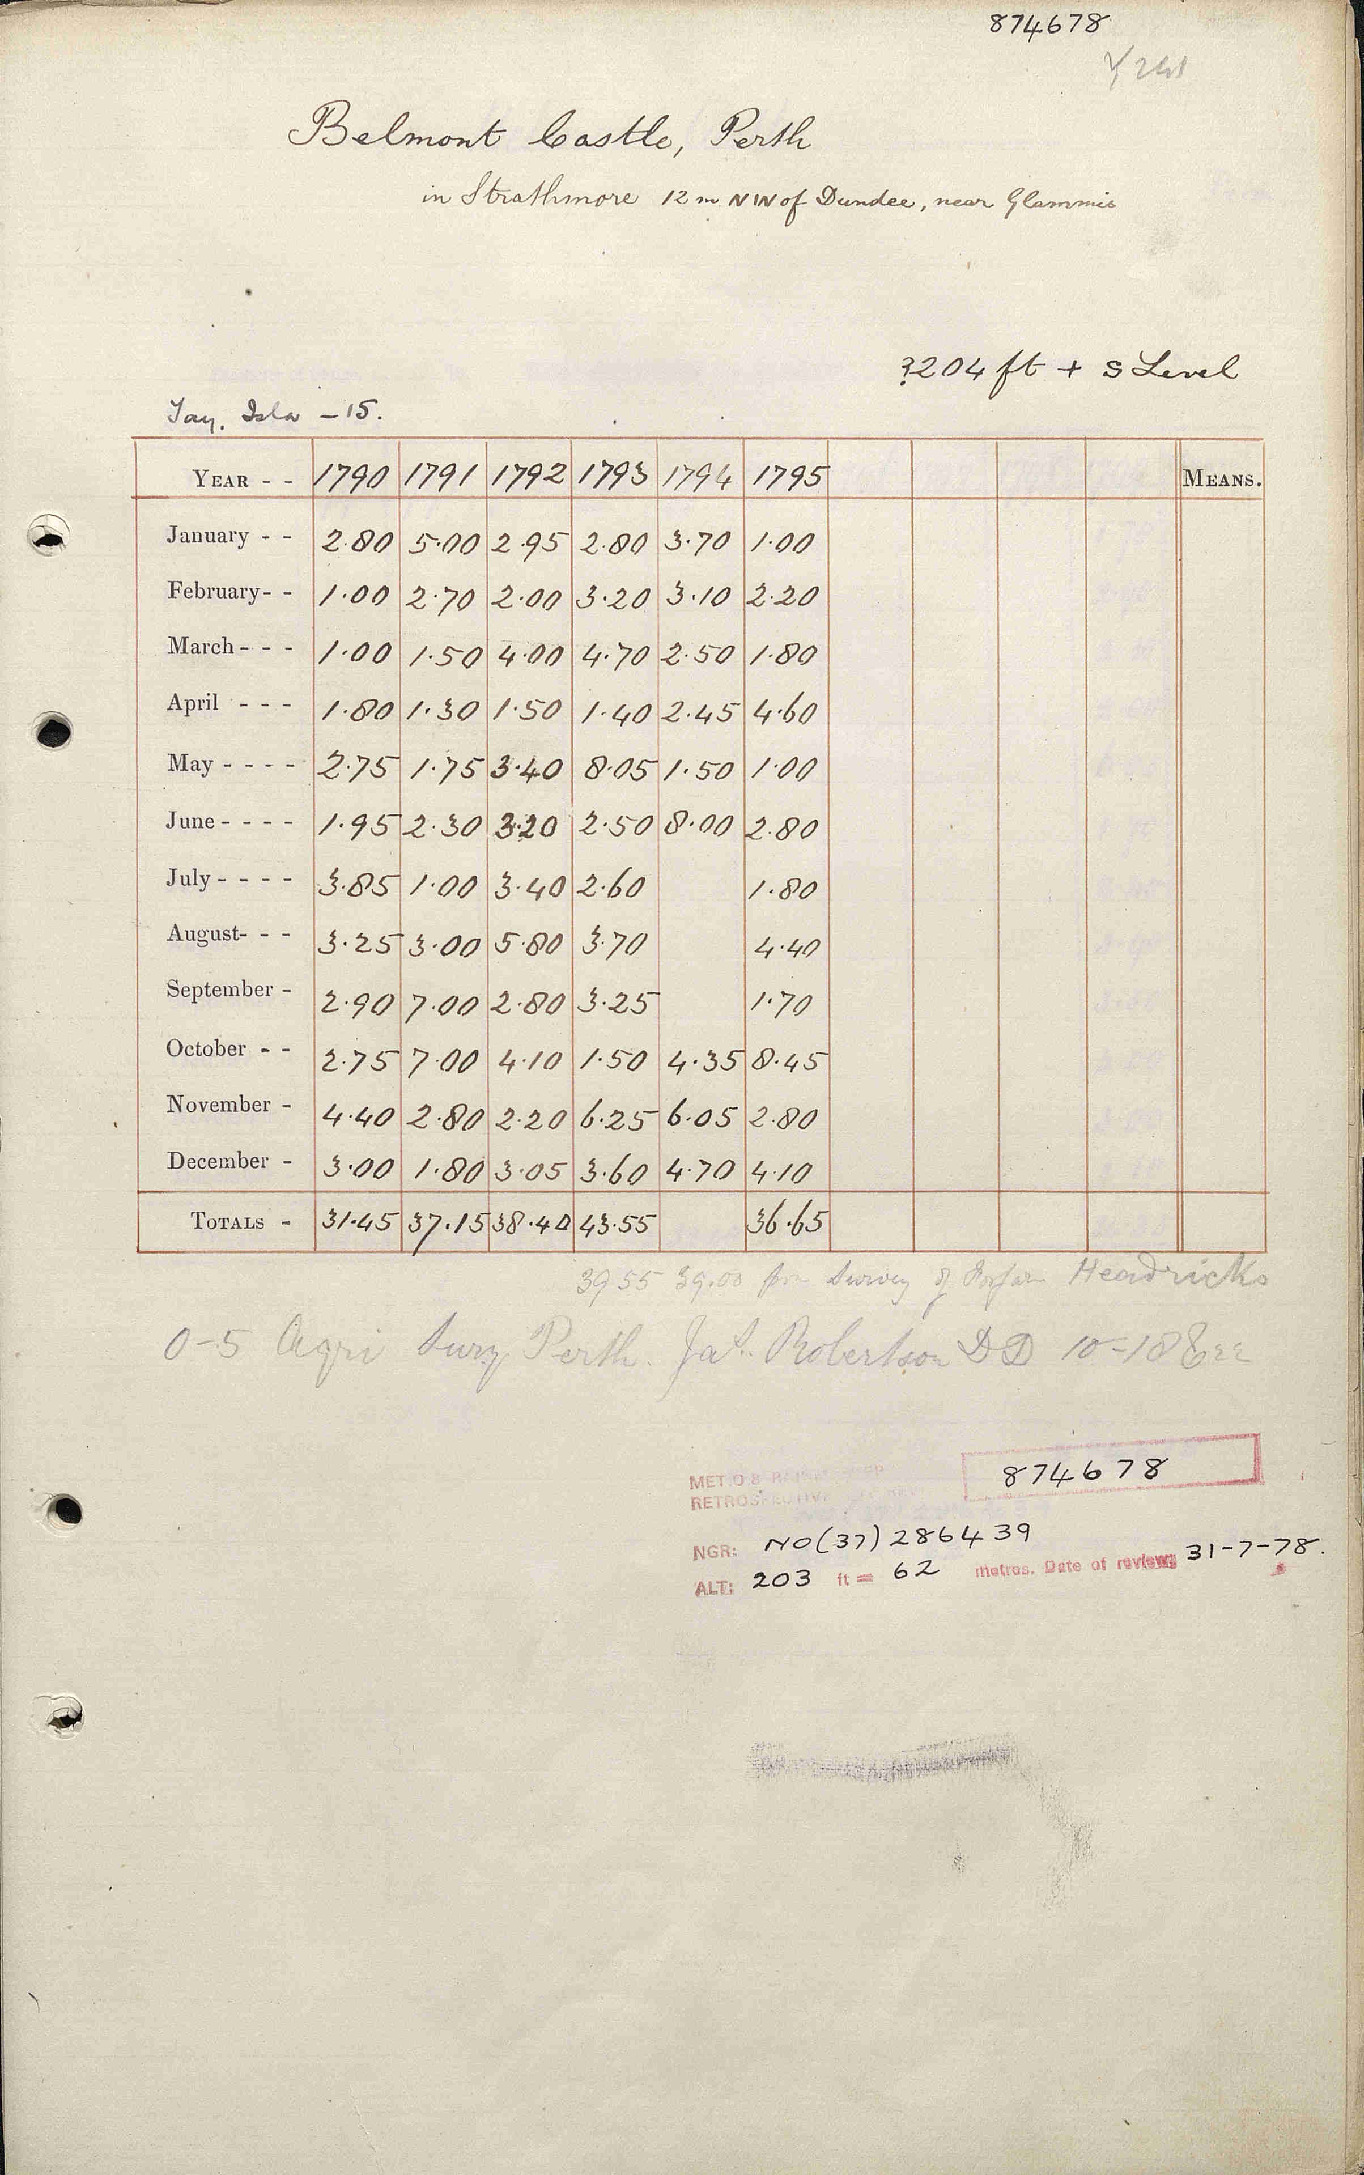 874678
Belmont Castle, Perth
in Strathmore 12 m NW of Dundee, near Glammis
?204 ft + S Level
Tay. Isla - 15.
YEAR - - 1790 1791 1792 1793 1794 1795 MEANS.
January - - 2.80 5.00 2.95 2.80 3.70 1.00
February - - 1.00 2.70 2.00 3.20 3.10 2.20
March - - - 1.00 1.50 4.00 4.70 2.50 1.80
April - - - 1.80 1.30 1.50 1.40 2.45 4.60
May - - - - 2.75 1.75 3.40 8.05 1.50 1.00
June - - - - 1.95 2.30 3.20 2.50 8.00 2.80
July - - - - 3.85 1.00 3.40 2.60 1.80
August - - - 3.25 3.00 5.80 3.70 4.40
September - 2.90 7.00 2.80 3.25 1.70
October - - 2.75 7.00 4.10 1.50 4.35 8.45
November - 4.40 2.80 2.20 6.25 6.05 2.80
December - 3.00 1.80 3.05 3.60 4.70 4.10
TOTALS - 31.45 37.15 38.40 43.55 36.65
39.55 39.00 Survey of Forfar Headricks
0-5 Agri Surv Perth. Jas. Robertson DD
MET.O.8
874678
RETROSPECTIVE
NGR: NO(37)286439
ALT: 203 ft = 62 metres. Date of review: 31-7-78.